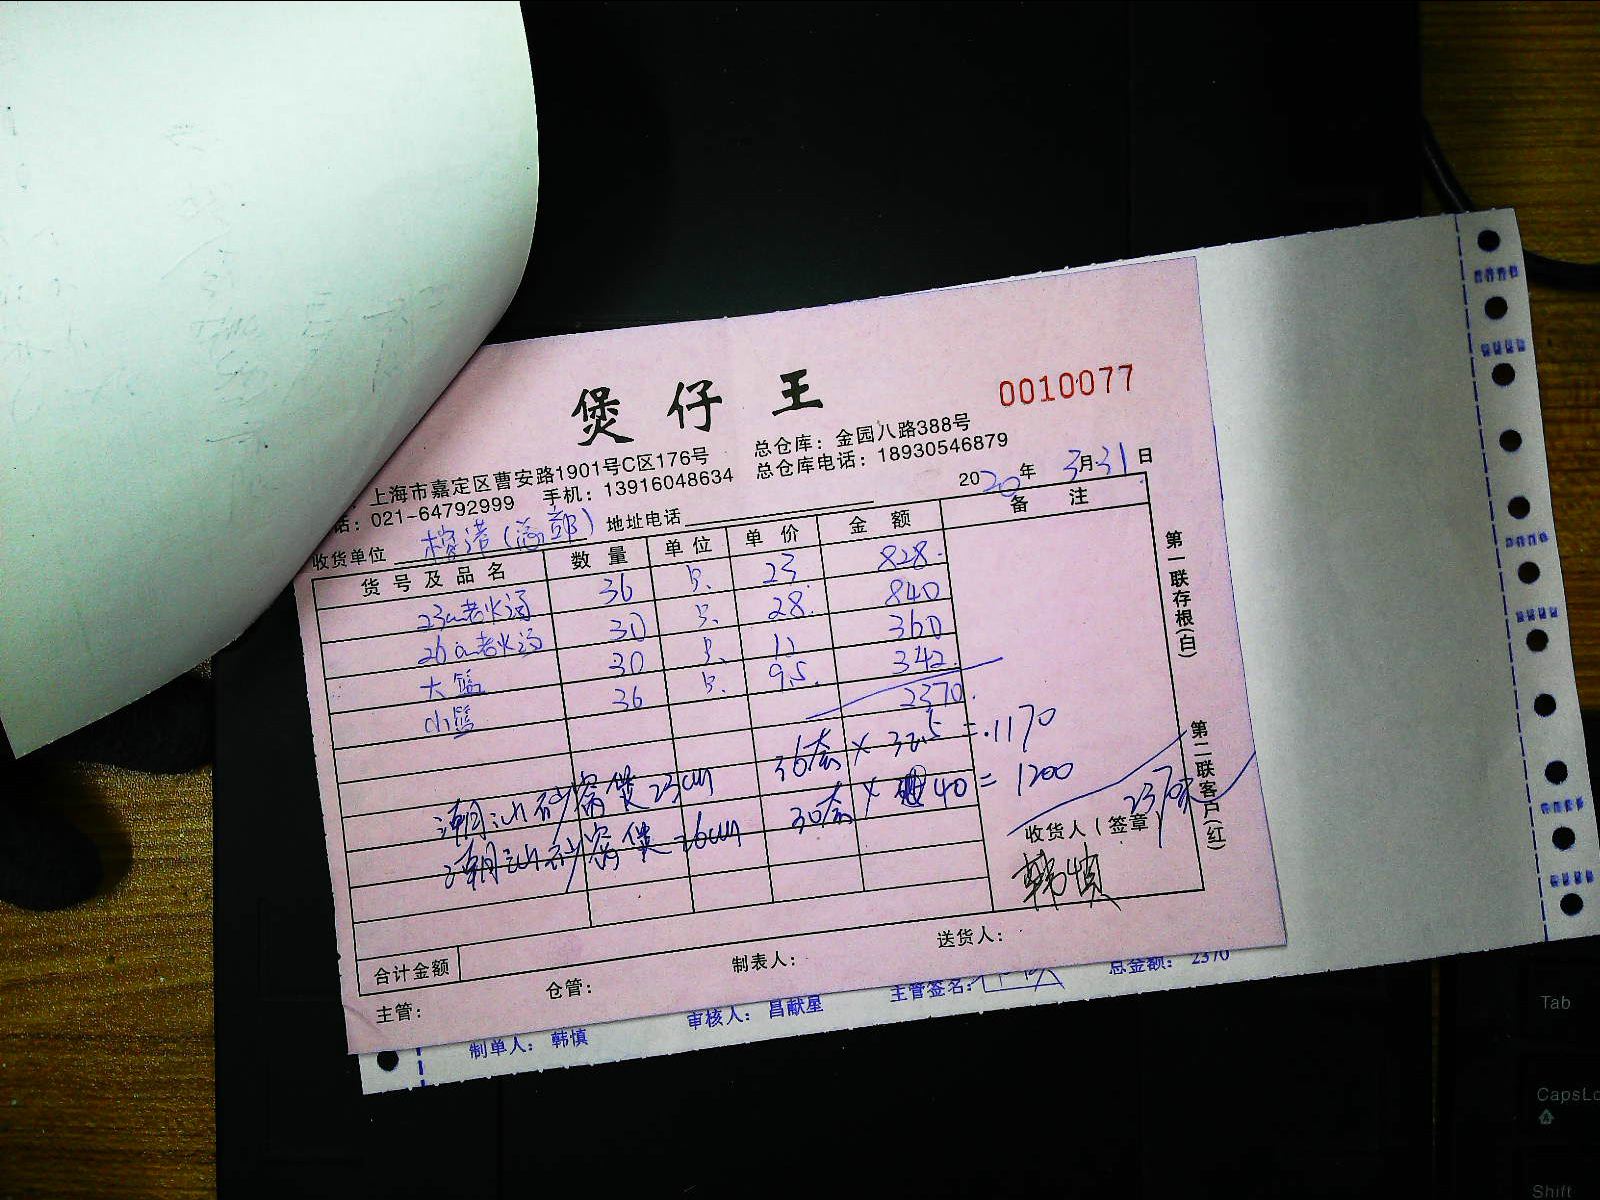 煲仔王
0010077
上海市嘉定区曹安路1901号C区176号 总仓库：金园八路388号
话：021-64792999 手机：13916048634 总仓库电话：18930546879
2020年 3月31日
收货单位 槟港(总部) 地址电话
货号及品名 数量 单位 单价 金额 备注
23cm老火汤 36 只 23 828
26cm老火汤 30 只 28 840
大篮 30 只 12 360
小篮 36 只 9.5 342
2370
潮汕砂窝煲23cm 36套 × 32.5 = 1170
潮汕砂窝煲26cm 30套 × 40 = 1200
2370
收货人（签章）
韩慎
第一联存根(白)
第二联客户(红)
合计金额
主管： 仓管： 制表人： 送货人：
制单人： 韩慎 审核人： 昌献星 主管签名： 总金额： 2370
Tab
CapsLo
Shift